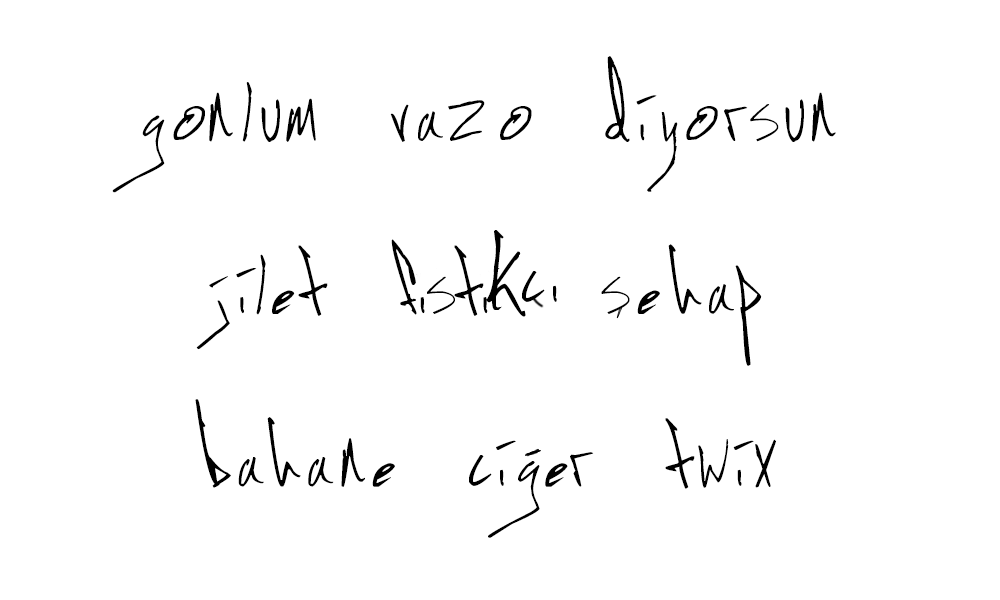 gonlum vazo diyorsun
jilet fıstıkçı şehap
bahane ciğer twix